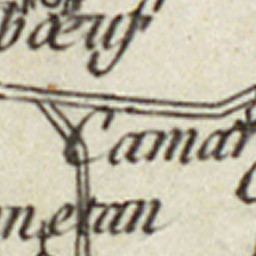 bœuf
Camar
netan